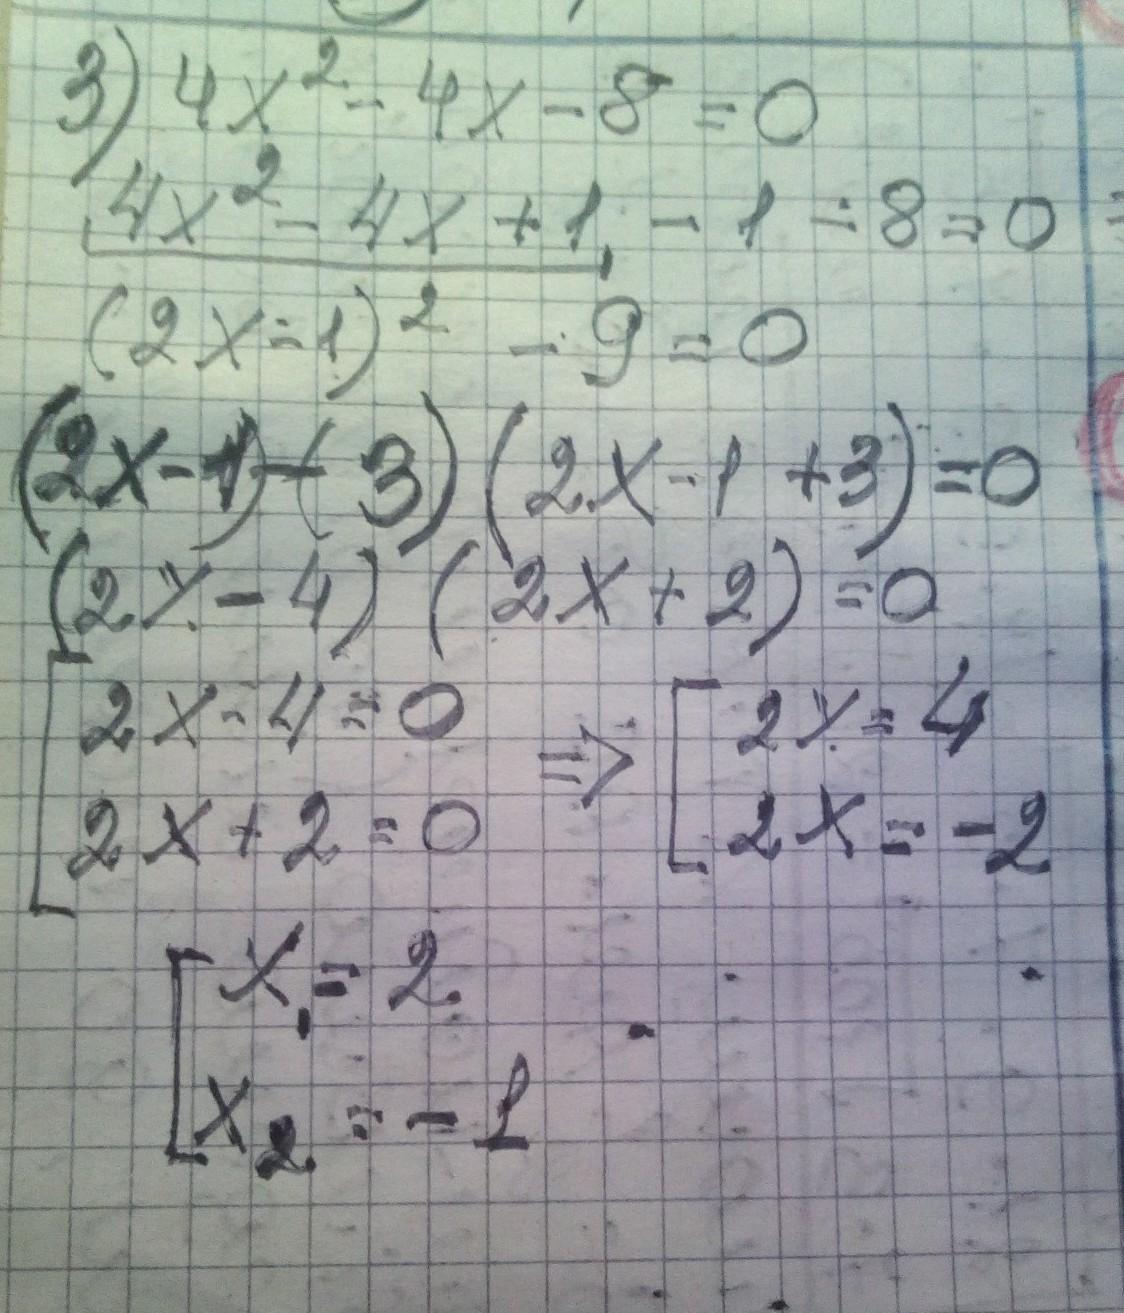 3) 4x² - 4x - 8 = 0
4x² - 4x + 1 - 1 - 8 = 0
(2x - 1)² - 9 = 0
(2x - 1) - 3) (2x - 1 + 3) = 0
(2x - 4) (2x + 2) = 0
[ 2x - 4 = 0 => [ 2x = 4
2x + 2 = 0 2x = -2
[ x₁ = 2
x₂ = -1